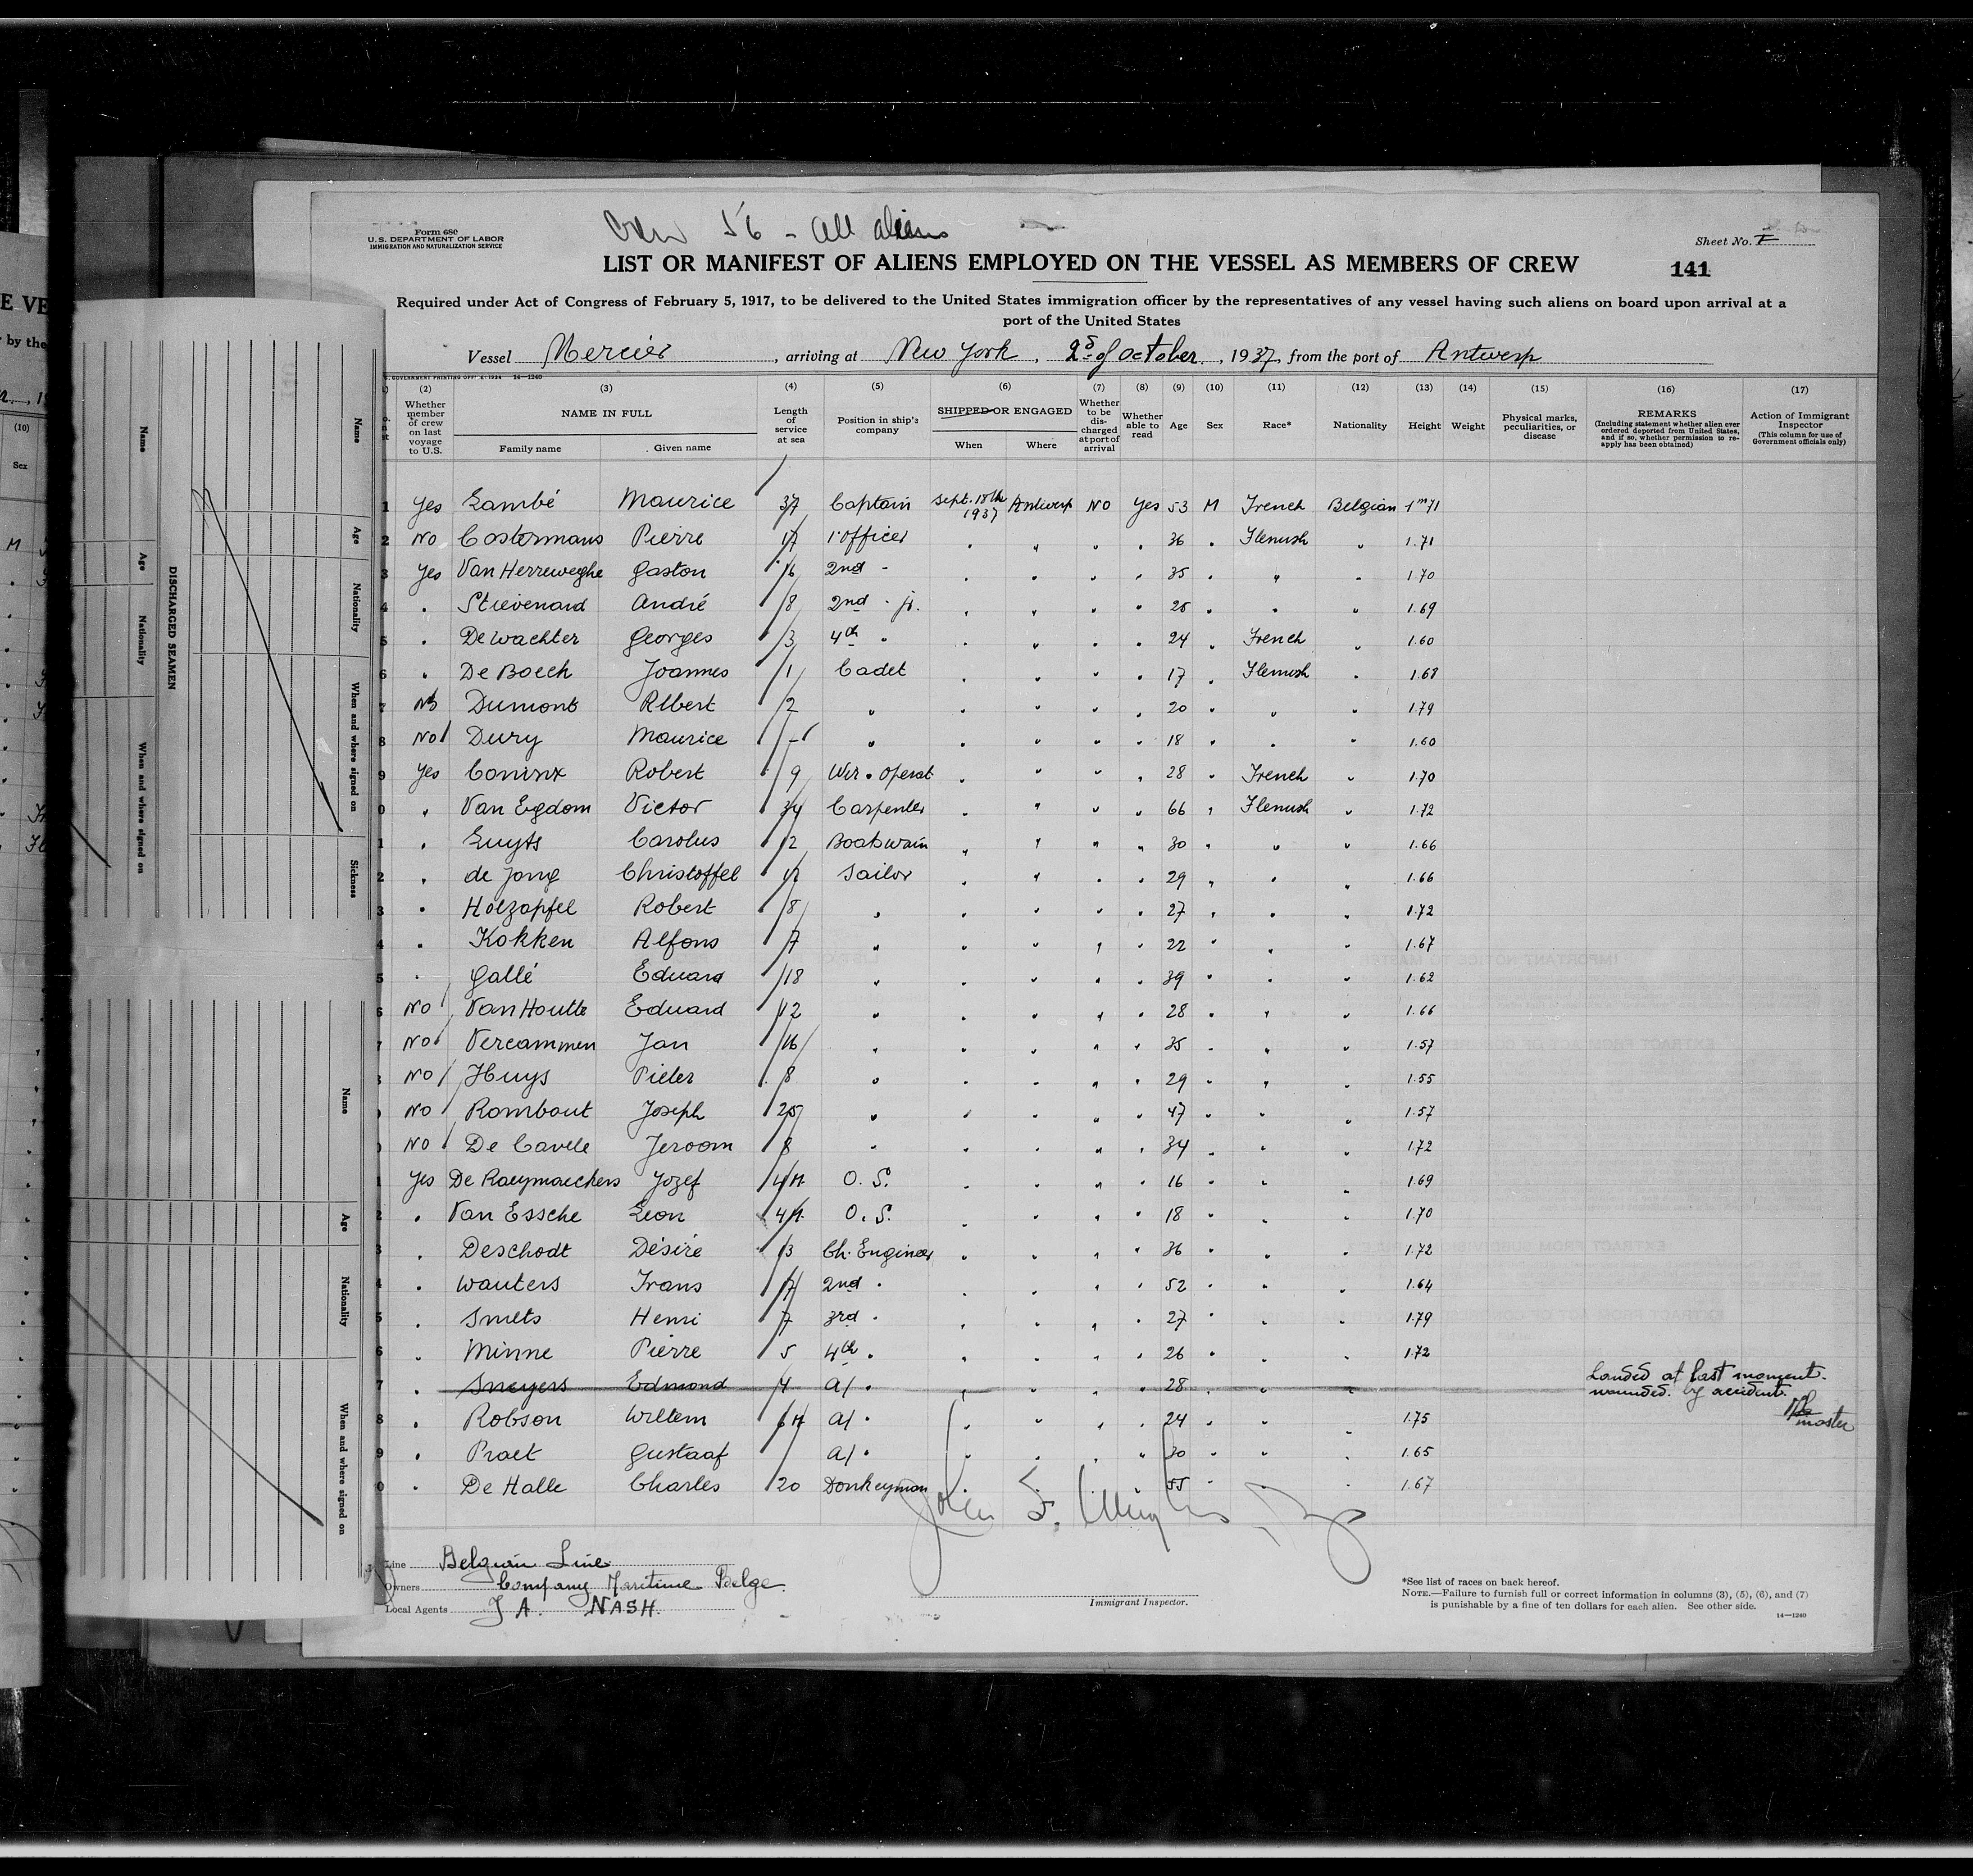 Crew 56 - all aliens
Form 680
U.S. DEPARTMENT OF LABOR
IMMIGRATION AND NATURALIZATION SERVICE
Sheet No. I
LIST OR MANIFEST OF ALIENS EMPLOYED ON THE VESSEL AS MEMBERS OF CREW
141
Required under Act of Congress of February 5, 1917, to be delivered to the United States immigration officer by the representatives of any vessel having such aliens on board upon arrival at a
port of the United States
Vessel Mercier, arriving at New York, 2d of october, 1937, from the port of Antwerp
(2) (3) (4) (5) (6) (7) (8) (9) (10) (11) (12) (13) (14) (15) (16) (17)
Whether member of crew on last voyage to U.S. NAME IN FULL Family name Given name Length of service at sea Position in ship's company SHIPPED OR ENGAGED When Where Whether to be discharged at port of arrival Whether able to read Age Sex Race* Nationality Height Weight Physical marks, peculiarities, or disease REMARKS (Including statement whether alien ever ordered deported from United States, and if so, whether permission to reapply has been obtained) Action of Immigrant Inspector (This column for use of Government officials only)
1 Yes Lambé Maurice 37 Captain Sept. 18th 1937 Antwerp No Yes 53 M French Belgian 1m71
2 No Costermans Pierre 17 1 officer " " " " 36 " Flemish " 1.71
3 Yes Van Herreweghe Gaston 16 2nd " " " " " 35 " " " 1.70
4 " Strevenard André 8 2nd " jr. " " " " 25 " " " 1.69
5 " De Wachter Georges 3 4th " " " " " 24 " French " 1.60
6 " De Boeck Joannes 1 Cadet " " " " 17 " Flemish " 1.68
7 No Dumont Albert 2 " " " " " 20 " " " 1.79
8 No Dury Maurice - " " " " " 18 " " " 1.60
9 Yes Coninx Robert 9 Wir. operat " " " " 28 " French " 1.70
0 " Van Egdom Victor 34 Carpenter " " " " 66 " Flemish " 1.72
1 " Luyts Carolus 12 Boatswain " " " " 30 " " " 1.66
2 " de Jong Christoffel 12 Sailor " " " " 29 " " " 1.66
3 " Holzapfel Robert 8 " " " " " 27 " " " 1.72
4 " Kokken Alfons 7 " " " " " 22 " " " 1.67
5 " Gallé Eduard 18 " " " " " 39 " " " 1.62
6 No Van Houtte Eduard 12 " " " " " 28 " " " 1.66
7 No Vercammen Jan 16 " " " " " 35 " " " 1.57
8 No Huys Pieter 8 " " " " " 29 " " " 1.55
No Rombout Joseph 25 " " " " " 47 " " " 1.57
No De Cavele Jeroom 8 " " " " " 34 " " " 1.72
1 Yes De Raeymaeckers Jozef 4M O. S. " " " " 16 " " " 1.69
2 " Van Essche Leon 4M O. S. " " " " 18 " " " 1.70
3 " Deschodt Désiré 13 Ch. Engineer " " " " 36 " " " 1.72
4 " Wauters Frans 17 2nd " " " " " 52 " " " 1.64
5 " Smets Henri 7 3rd " " " " " 27 " " " 1.79
6 " Minne Pierre 5 4th " " " " " 26 " " " 1.72
7 " Sneyers Edmond 4 A/ " " " " " 28 " " " Landed at last moment. wounded by accident.
8 " Robson Willem 6M A/ " " " " " 24 " " " 1.75 master
9 " Praet Gustaaf A/ " " " " " 30 " " " 1.65
0 " De Halle Charles 20 Donkeyman " " " " 55 " " 1.67
Line Belgian Line
Owners Company Maritime Belge.
Local Agents J A. NASH.
Immigrant Inspector.
*See list of races on back hereof.
NOTE.—Failure to furnish full or correct information in columns (3), (5), (6), and (7)
is punishable by a fine of ten dollars for each alien. See other side.
14—1240
DISCHARGED SEAMEN
Name Age Nationality When and where signed on Sickness
Name Age Nationality When and where signed on
Name Age Nationality When and where signed on